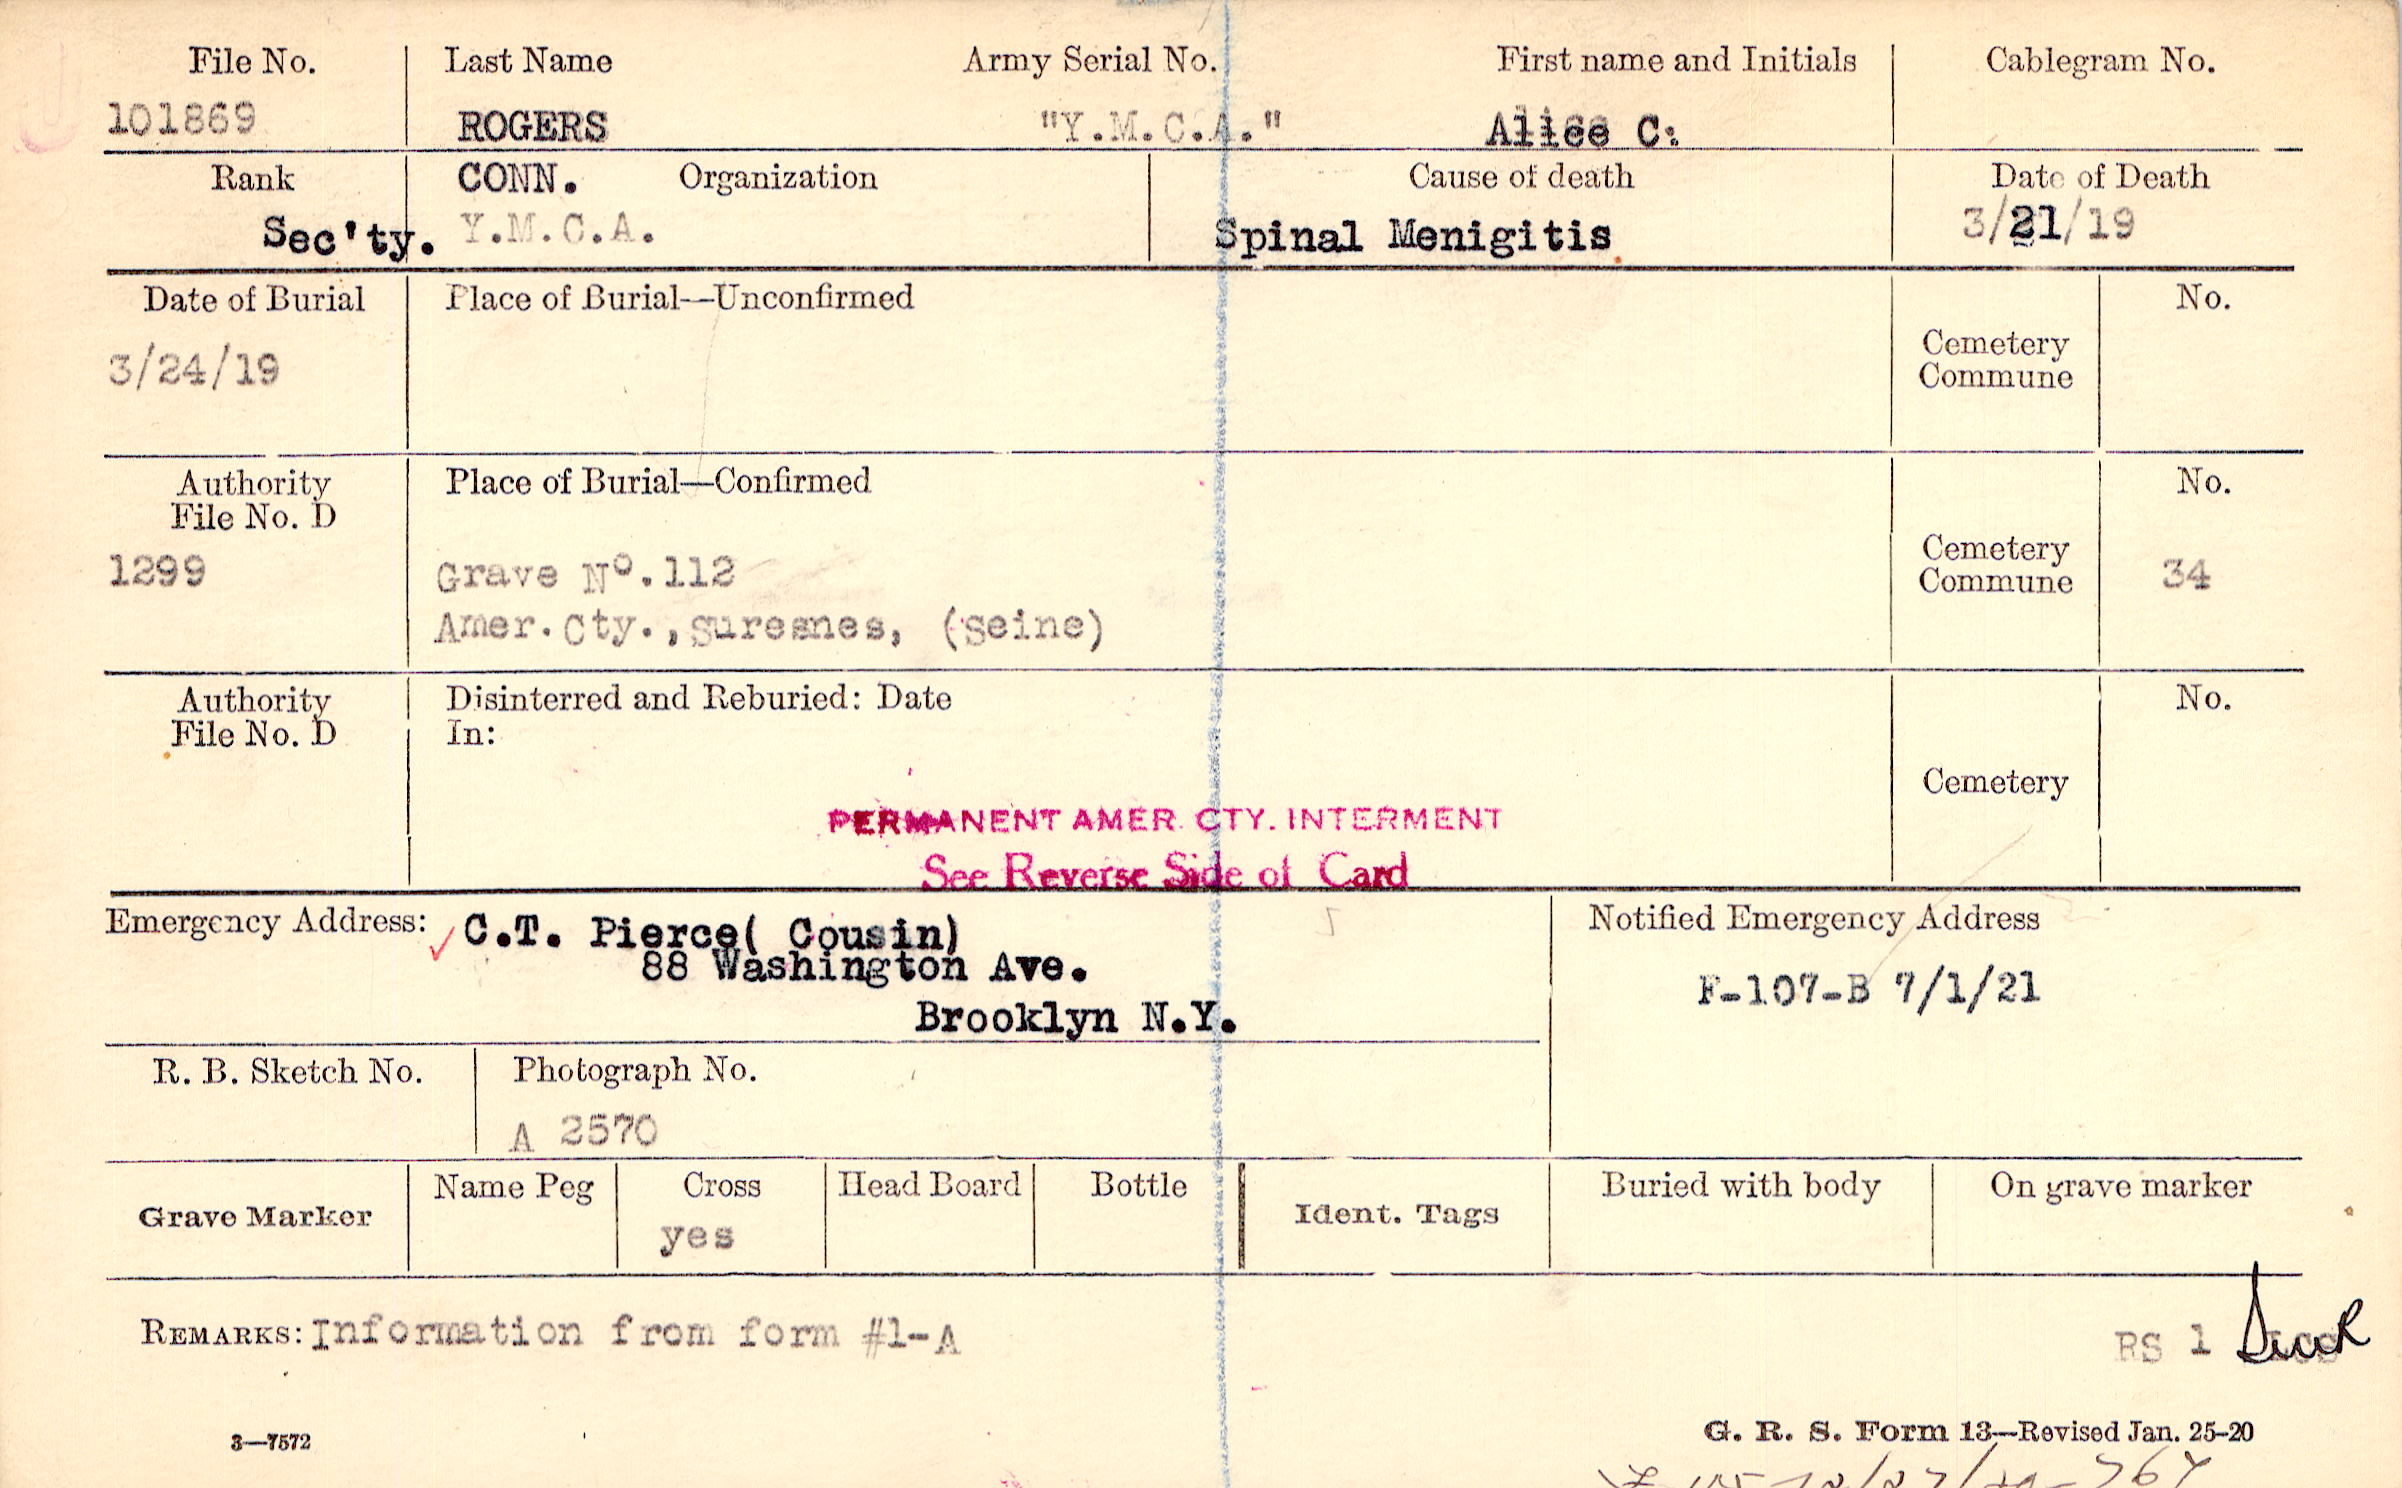 File No. Last Name Army Serial No. First name and Initials Cablegram No.
101869 ROGERS "Y.M.C.A." Alice C.
Rank CONN. Organization Cause of death Date of Death
Sec'ty. Y.M.C.A. Spinal Menigitis 3/21/19
Date of Burial Place of Burial—Unconfirmed No.
3/24/19 Cemetery
Commune
Authority Place of Burial—Confirmed No.
File No. D
1299 Grave Nº.112 Cemetery
Commune 34
Amer.Cty.,Suresnes, (Seine)
Authority Disinterred and Reburied: Date No.
File No. D In:
Cemetery
PERMANENT AMER. CTY. INTERMENT
See Reverse Side of Card
Emergency Address: C.T. Pierce( Cousin) Notified Emergency Address
88 Washington Ave.
F-107-B 7/1/21
Brooklyn N.Y.
R. B. Sketch No. Photograph No.
A 2570
Name Peg Cross Head Board Bottle Buried with body On grave marker
Grave Marker Ident. Tags
yes
REMARKS: Information from form #1-A
RS 1
G. R. S. Form 13—Revised Jan. 25-20
3—7572